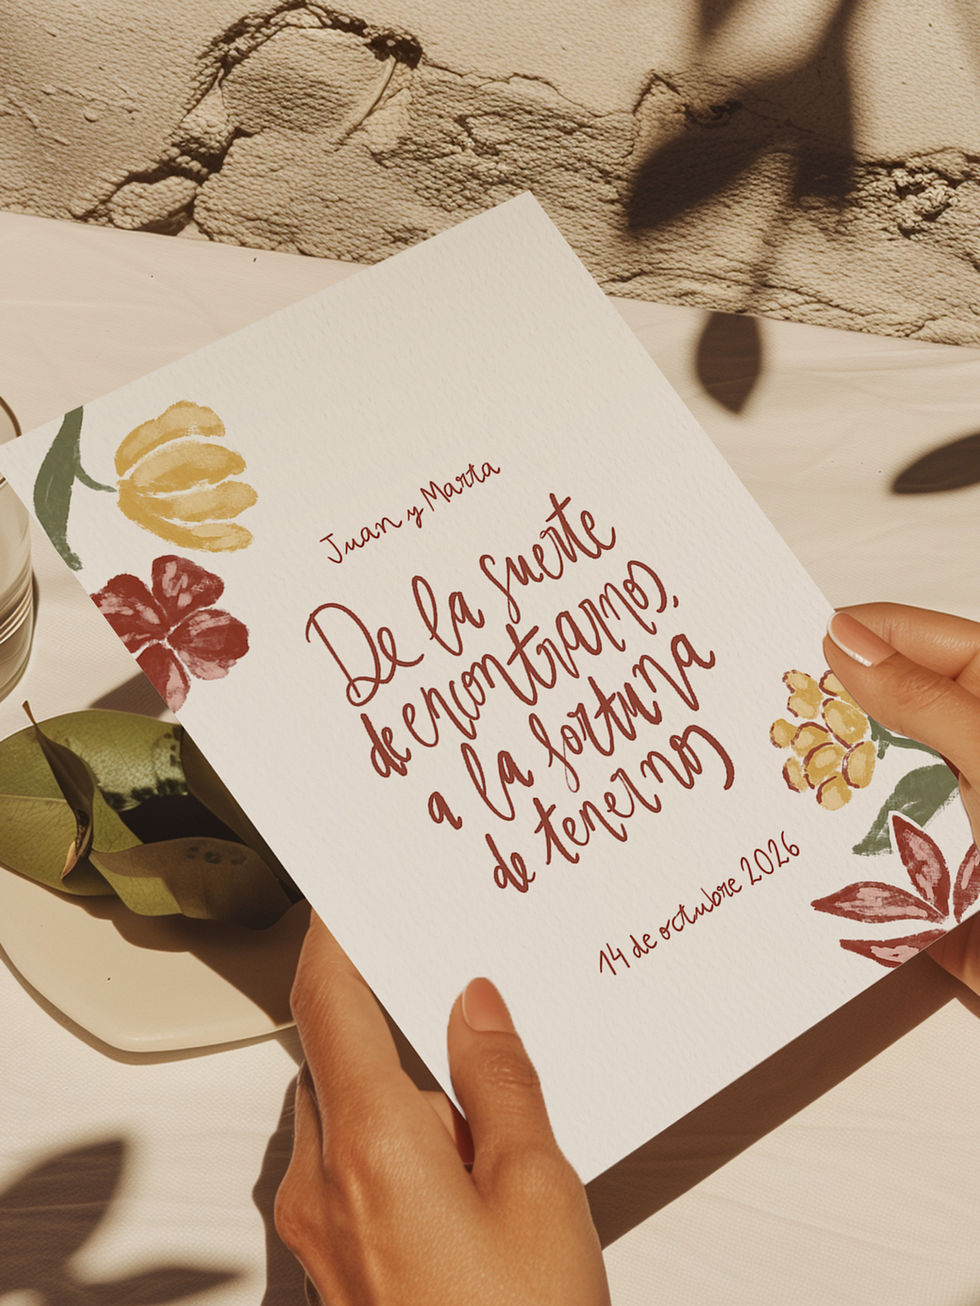 Juan y Marta
De la suerte
de encontrarnos,
a la fortuna
de tenernos
14 de octubre 2026